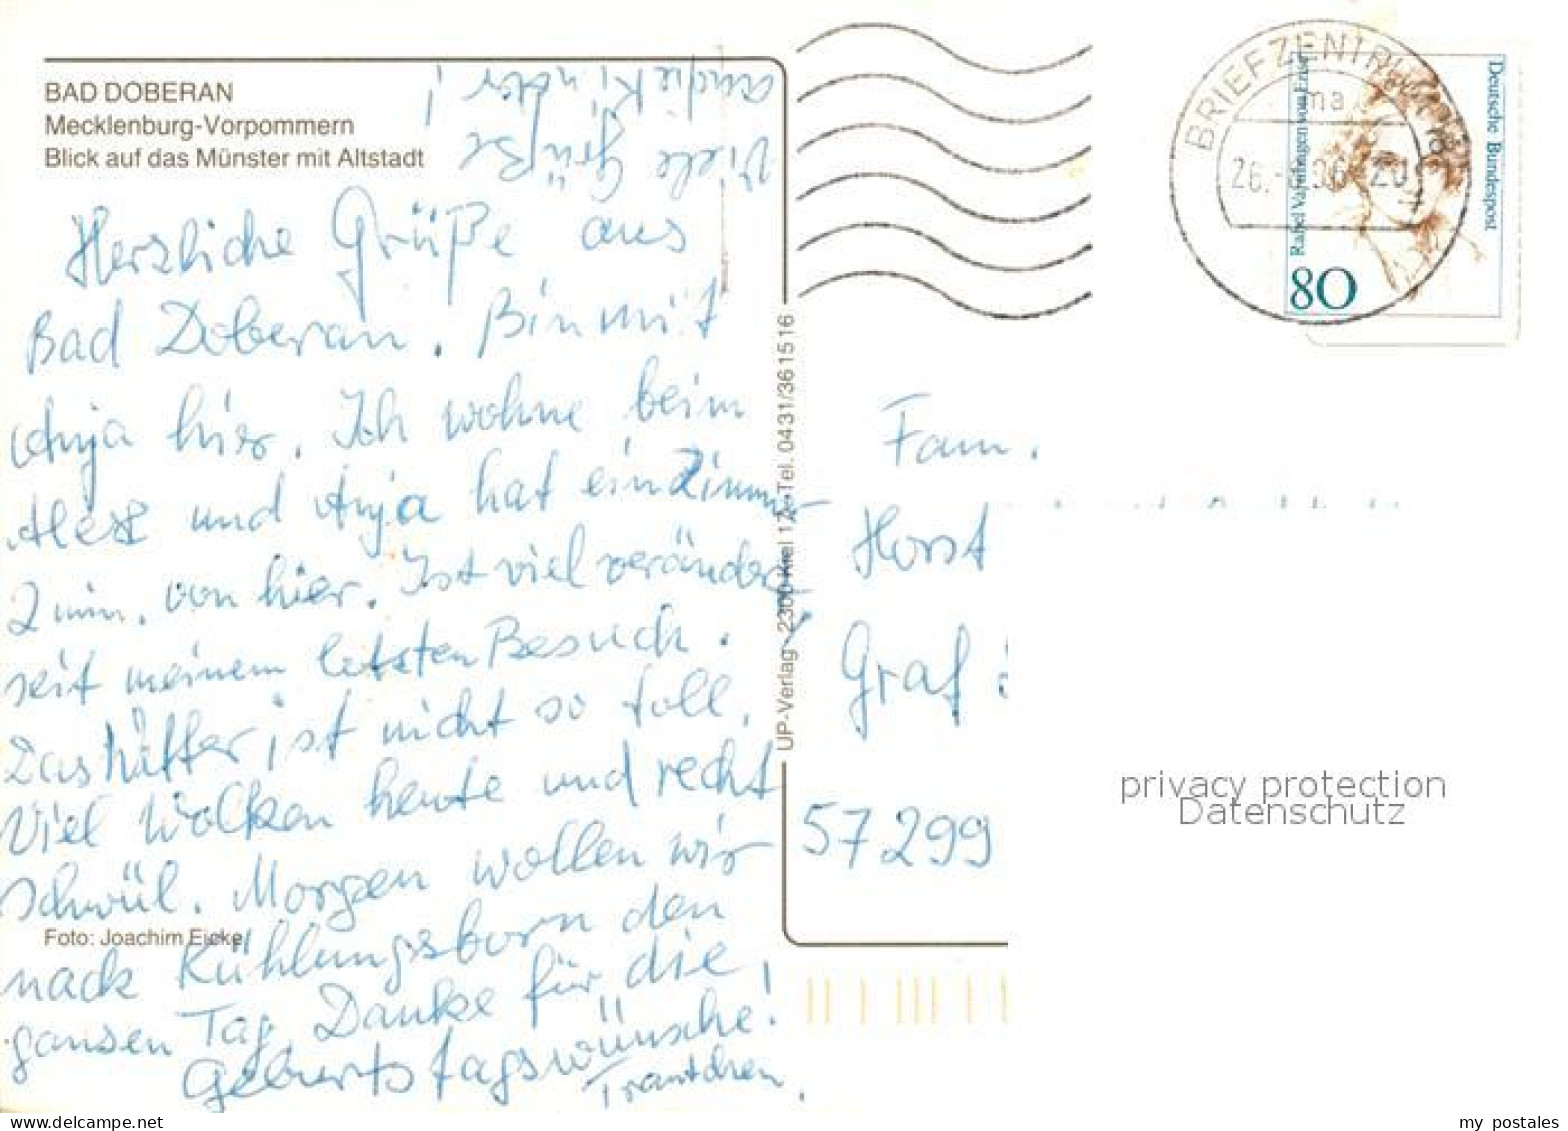 BAD DOBERAN
Mecklenburg-Vorpommern
Blick auf das Münster mit Altstadt
Viele Grüße
an die Kinder!
Herzliche Grüße aus
Bad Doberan. Bin mit
Anja hier. Ich wohne beim
und Anja hat ein Zimmer
2 min. von hier. Ist viel verändert
seit meinem letzten Besuch.
Das Wetter ist nicht so toll.
Viel Wolken heute und recht
schwül. Morgen wollen wir
nach Kühlungsborn den
ganzen Tag. Danke für die
Geburtstagswünsche!
Trautchen.
Foto: Joachim Eicke
UP-Verlag · 2300 Kiel 17 · Tel. 0431/361516
BRIEFZENTRUM 18
ma
26.
20
Deutsche Bundespost
Rahel Varnhagen von Ense
80
Fam.
Horst
Graf
57299
privacy protection
Datenschutz
delcampe.net
my_postales